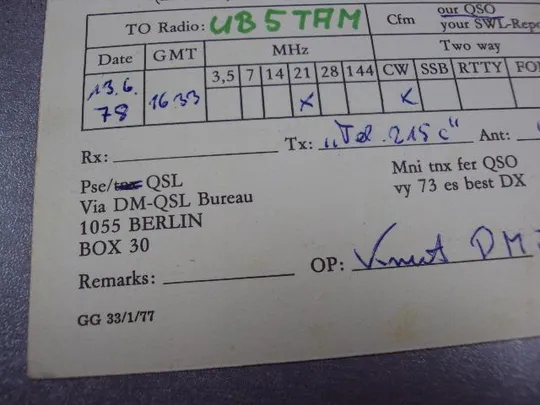 TO Radio: UB5TAM Cfm our QSO
your SWL-Repo
Date GMT MHz Two way
3,5 7 14 21 28 144 CW SSB RTTY FO
13.6. 78 1633 x x
Rx: Tx: „Tel. 215c“ Ant:
Pse/tnx QSL
Via DM-QSL Bureau
1055 BERLIN
BOX 30
Mni tnx fer QSO
vy 73 es best DX
Remarks: OP: Knut DM
GG 33/1/77